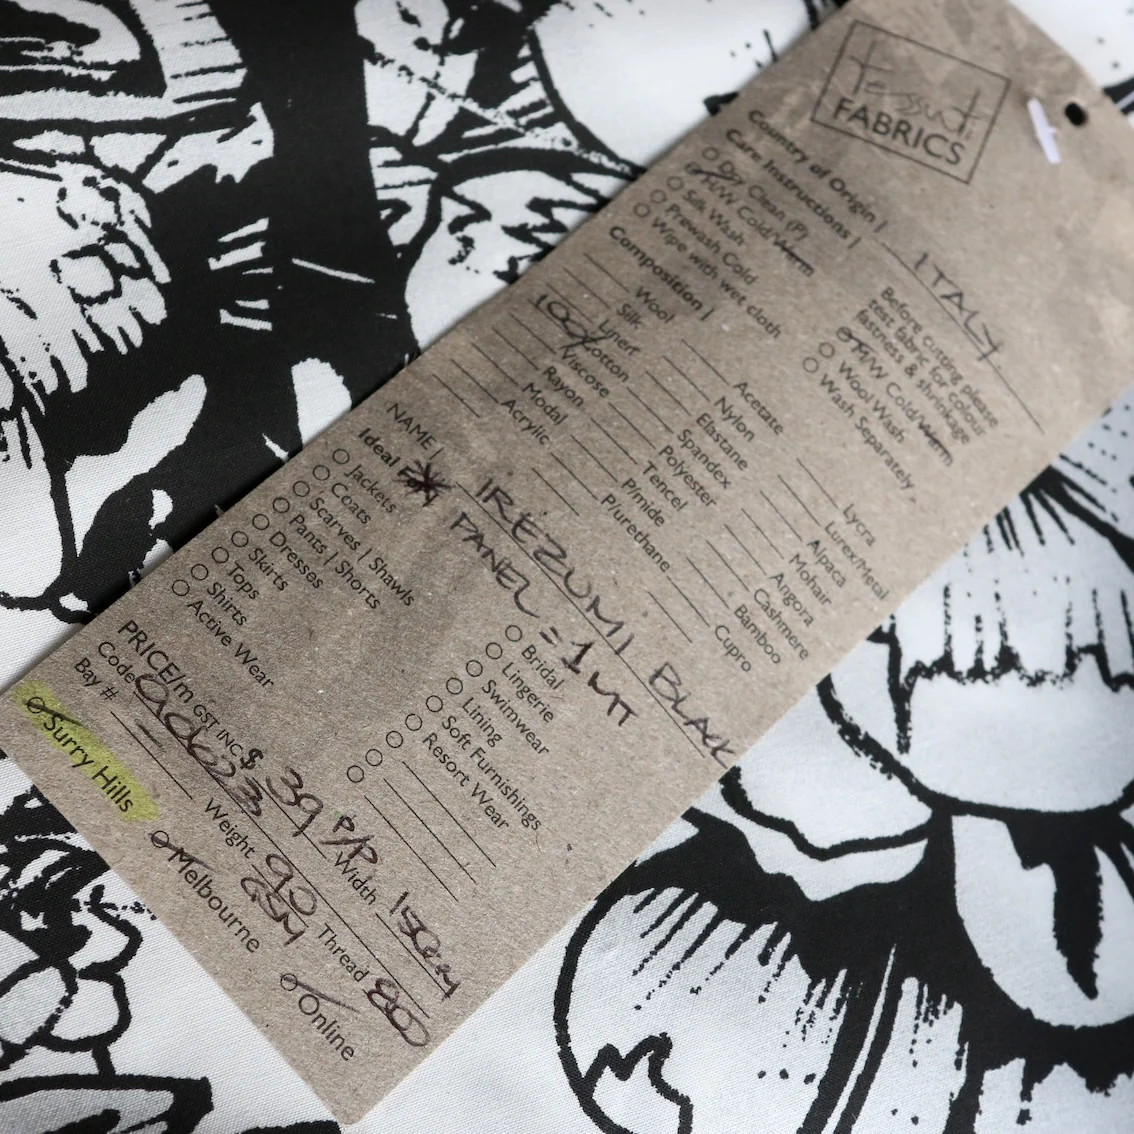 Tessuti
FABRICS
Country of Origin | ITALY
Care Instructions |
Dry Clean (P)
M/W Cold/Warm
Silk Wash
Prewash Cold
Wipe with wet cloth
Before cutting please
test fabric for colour
fastness & shrinkage
M/W Cold/Warm
Wool Wash
Wash Separately
Composition |
Wool
Silk
Linen
100% Cotton
Viscose
Rayon
Modal
Acrylic
Acetate
Nylon
Elastane
Spandex
Polyester
Tencel
P/mide
P/urethane
Lycra
Lurex/Metal
Alpaca
Mohair
Angora
Cashmere
Bamboo
Cupro
NAME | IREZUMI BLACK
Ideal For |
* PANEL = 1 MT
Jackets
Coats
Scarves | Shawls
Pants | Shorts
Dresses
Skirts
Tops
Shirts
Active Wear
Bridal
Lingerie
Swimwear
Lining
Soft Furnishings
Resort Wear
PRICE/m GST INC. $ 39 P/P
Code
Width
Bay #
Weight 90 GSM
Thread
Surry Hills
Melbourne
Online